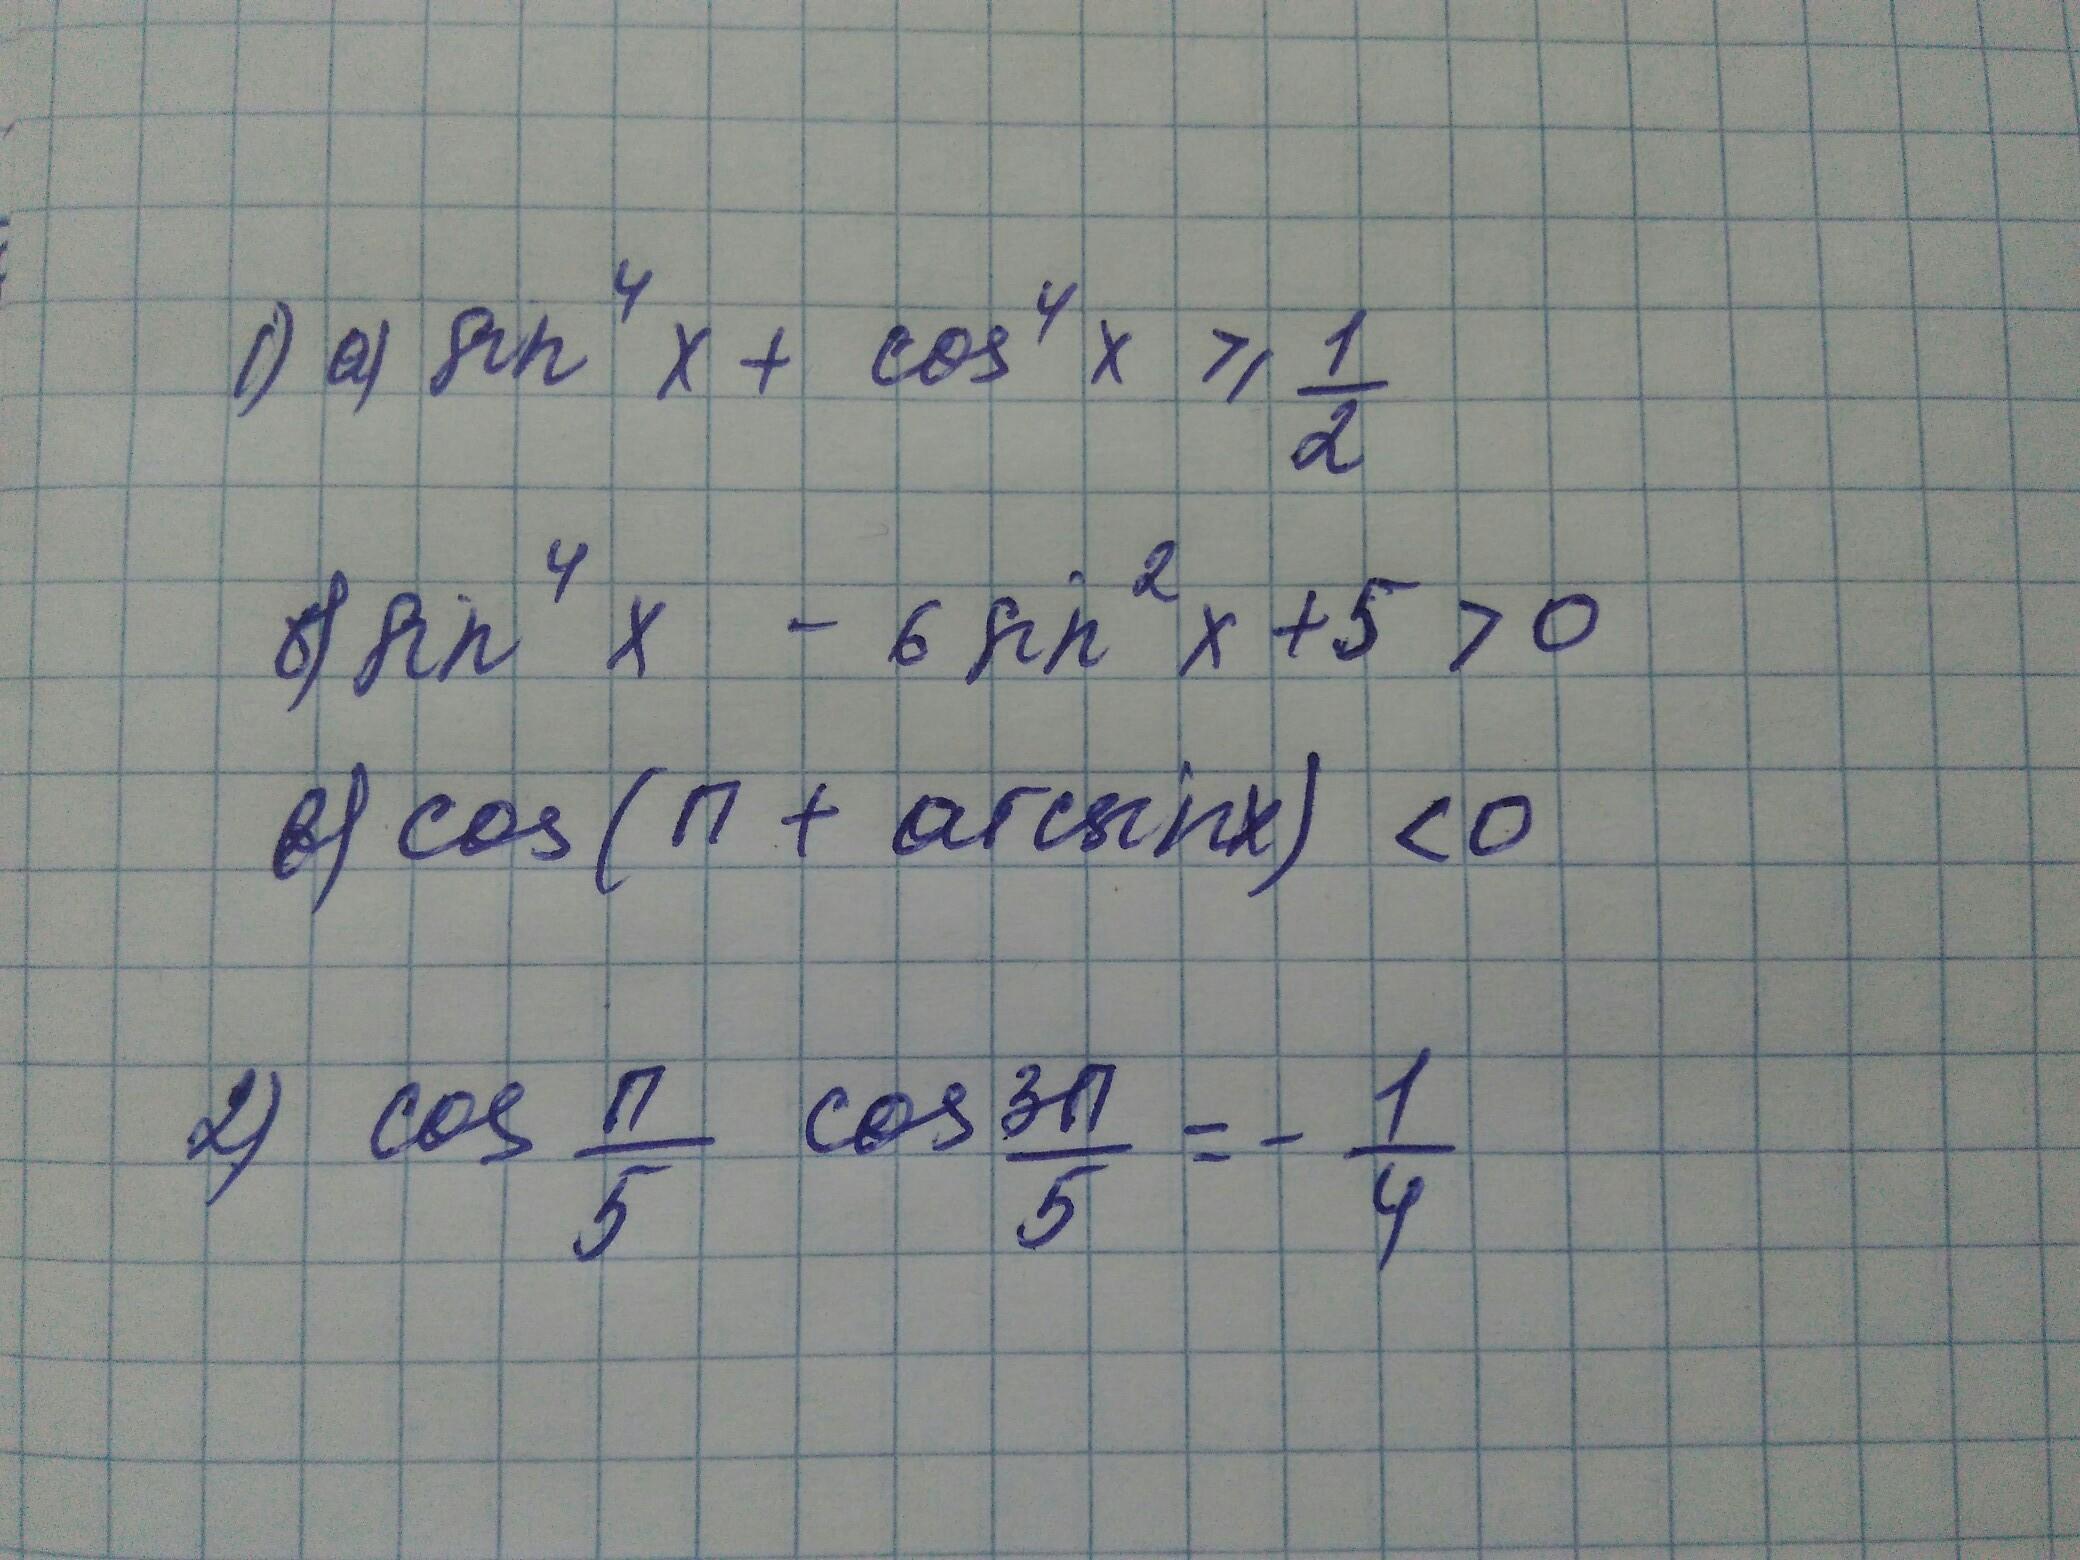 1) а) sin⁴x + cos⁴x ⩾ 1/2
б) sin⁴x - 6 sin²x + 5 > 0
в) cos(π + arcsinx) < 0
2) cos π/5 cos 3π/5 = - 1/4